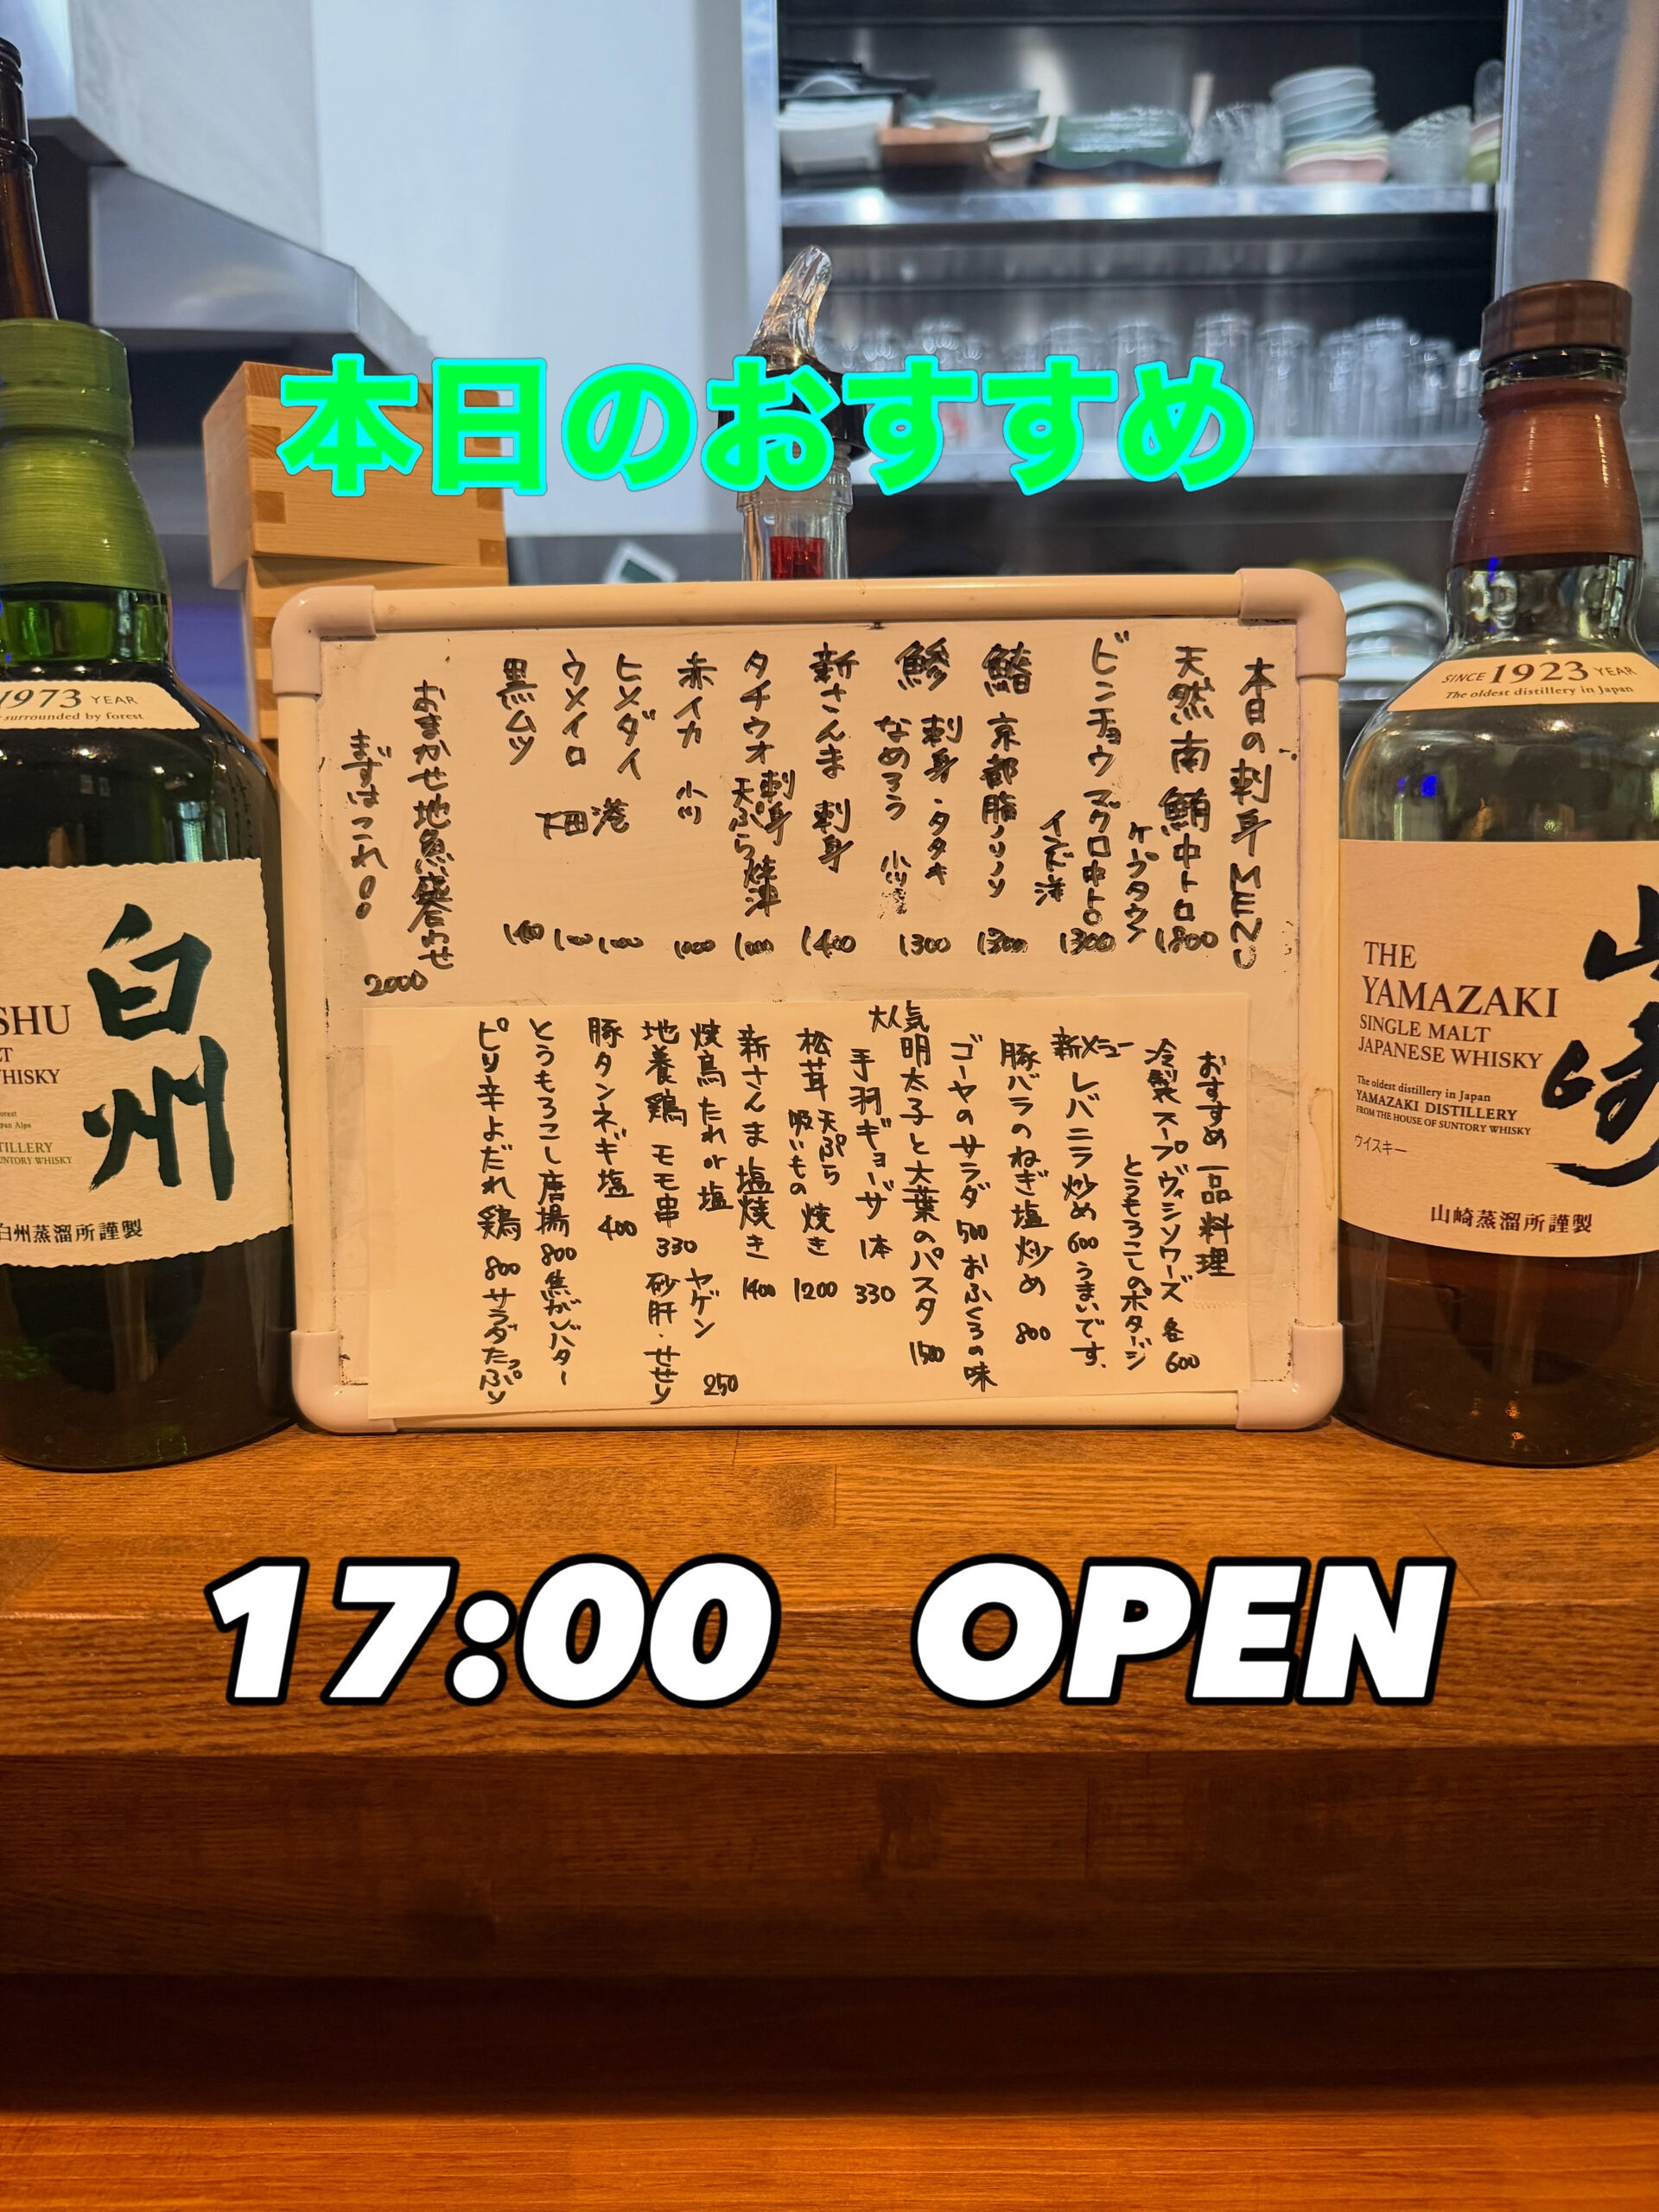 本日のおすすめ
本日の刺身MENU
天然南鮪中トロ 1800
ケープタウン
ビンチョウマグロ中トロ 1300
インド洋
鰆 京都 脂ノリノリ 1300
鯵 刺身・タタキ
なめろう 小川港 1300
新さんま 刺身 1400
タチウオ 刺身 天ぷら 焼津 1000
赤イカ 小川 1000
ヒメダイ 1000
ウメイロ 1000
下田港
黒ムツ 1400
おまかせ地魚盛合わせ
2000
まずはこれ!!
おすすめ一品料理
冷製スープ ヴィシソワーズ 各600
とうもろこしのポタージュ
新メニュー レバニラ炒め 600 うまいです.
豚バラのねぎ塩炒め 800
ゴーヤのサラダ 500 おふくろの味
大人気 明太子と大葉のパスタ 1500
手羽ギョーザ 1本 330
松茸 天ぷら 吸いもの 焼き 1200
新さんま塩焼き 1400
焼鳥 たれor塩 ヤゲン 250
地養鶏 モモ串 330 砂肝・せせり
豚タンネギ塩 400
とうもろこし唐揚 800 焦がしバター
ピリ辛よだれ鶏 800 サラダたっぷり
1973 YEAR
surrounded by forest
SHU
白州
WHISKY
白州蒸溜所謹製
SINCE 1923 YEAR
The oldest distillery in Japan
THE
YAMAZAKI
SINGLE MALT
JAPANESE WHISKY
The oldest distillery in Japan
YAMAZAKI DISTILLERY
FROM THE HOUSE OF SUNTORY WHISKY
ウイスキー
山崎
山崎蒸溜所謹製
17:00 OPEN